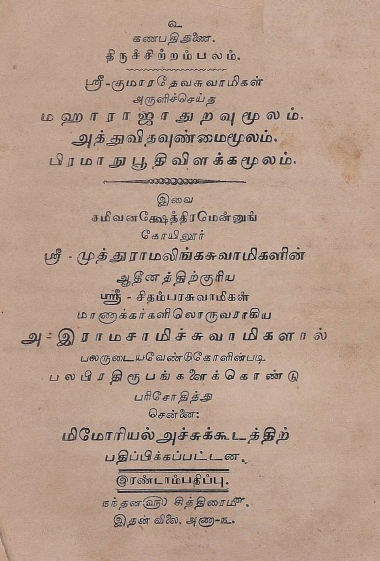 உ
கணபதிதுணை.
திருச்சிற்றம்பலம்.
ஸ்ரீ-குமாரதேவசுவாமிகள்
அருளிச்செய்த
மஹாராஜாதுறவுமூலம்.
அத்துவிதவுண்மைமூலம்.
பிரமாநுபூதிவிளக்கமூலம்.
இவை
சமிவனக்ஷேத்திரமென்னுங்
கோயிலூர்
ஸ்ரீ-முத்துராமலிங்கசுவாமிகளின்
ஆதீனத்திற்குரிய
ஸ்ரீ-சிதம்பரசுவாமிகள்
மாணாக்கர்களிலொருவராகிய
அ-இராமசாமிச்சுவாமிகளால்
பலருடையவேண்டுகோளின்படி
பலபிரதிரூபங்களைக்கொண்டு
பரிசோதித்து
சென்னை:
மிமோரியல்அச்சுக்கூடத்திற்
பதிப்பிக்கப்பட்டன.
இரண்டாம்பதிப்பு.
நந்தன௵ சித்திரை௴
இதன் விலை. அணா-௩.